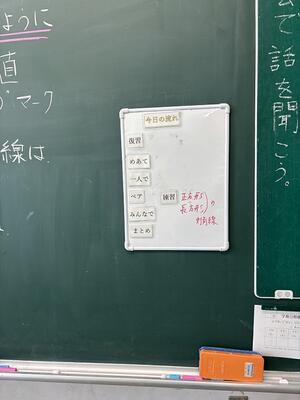 ように
直
マーク
線は
今日の流れ
復習
めあて
一人で
ペア
みんなで
まとめ
練習
正方形
長方形
の
対角線
で話を聞こう。